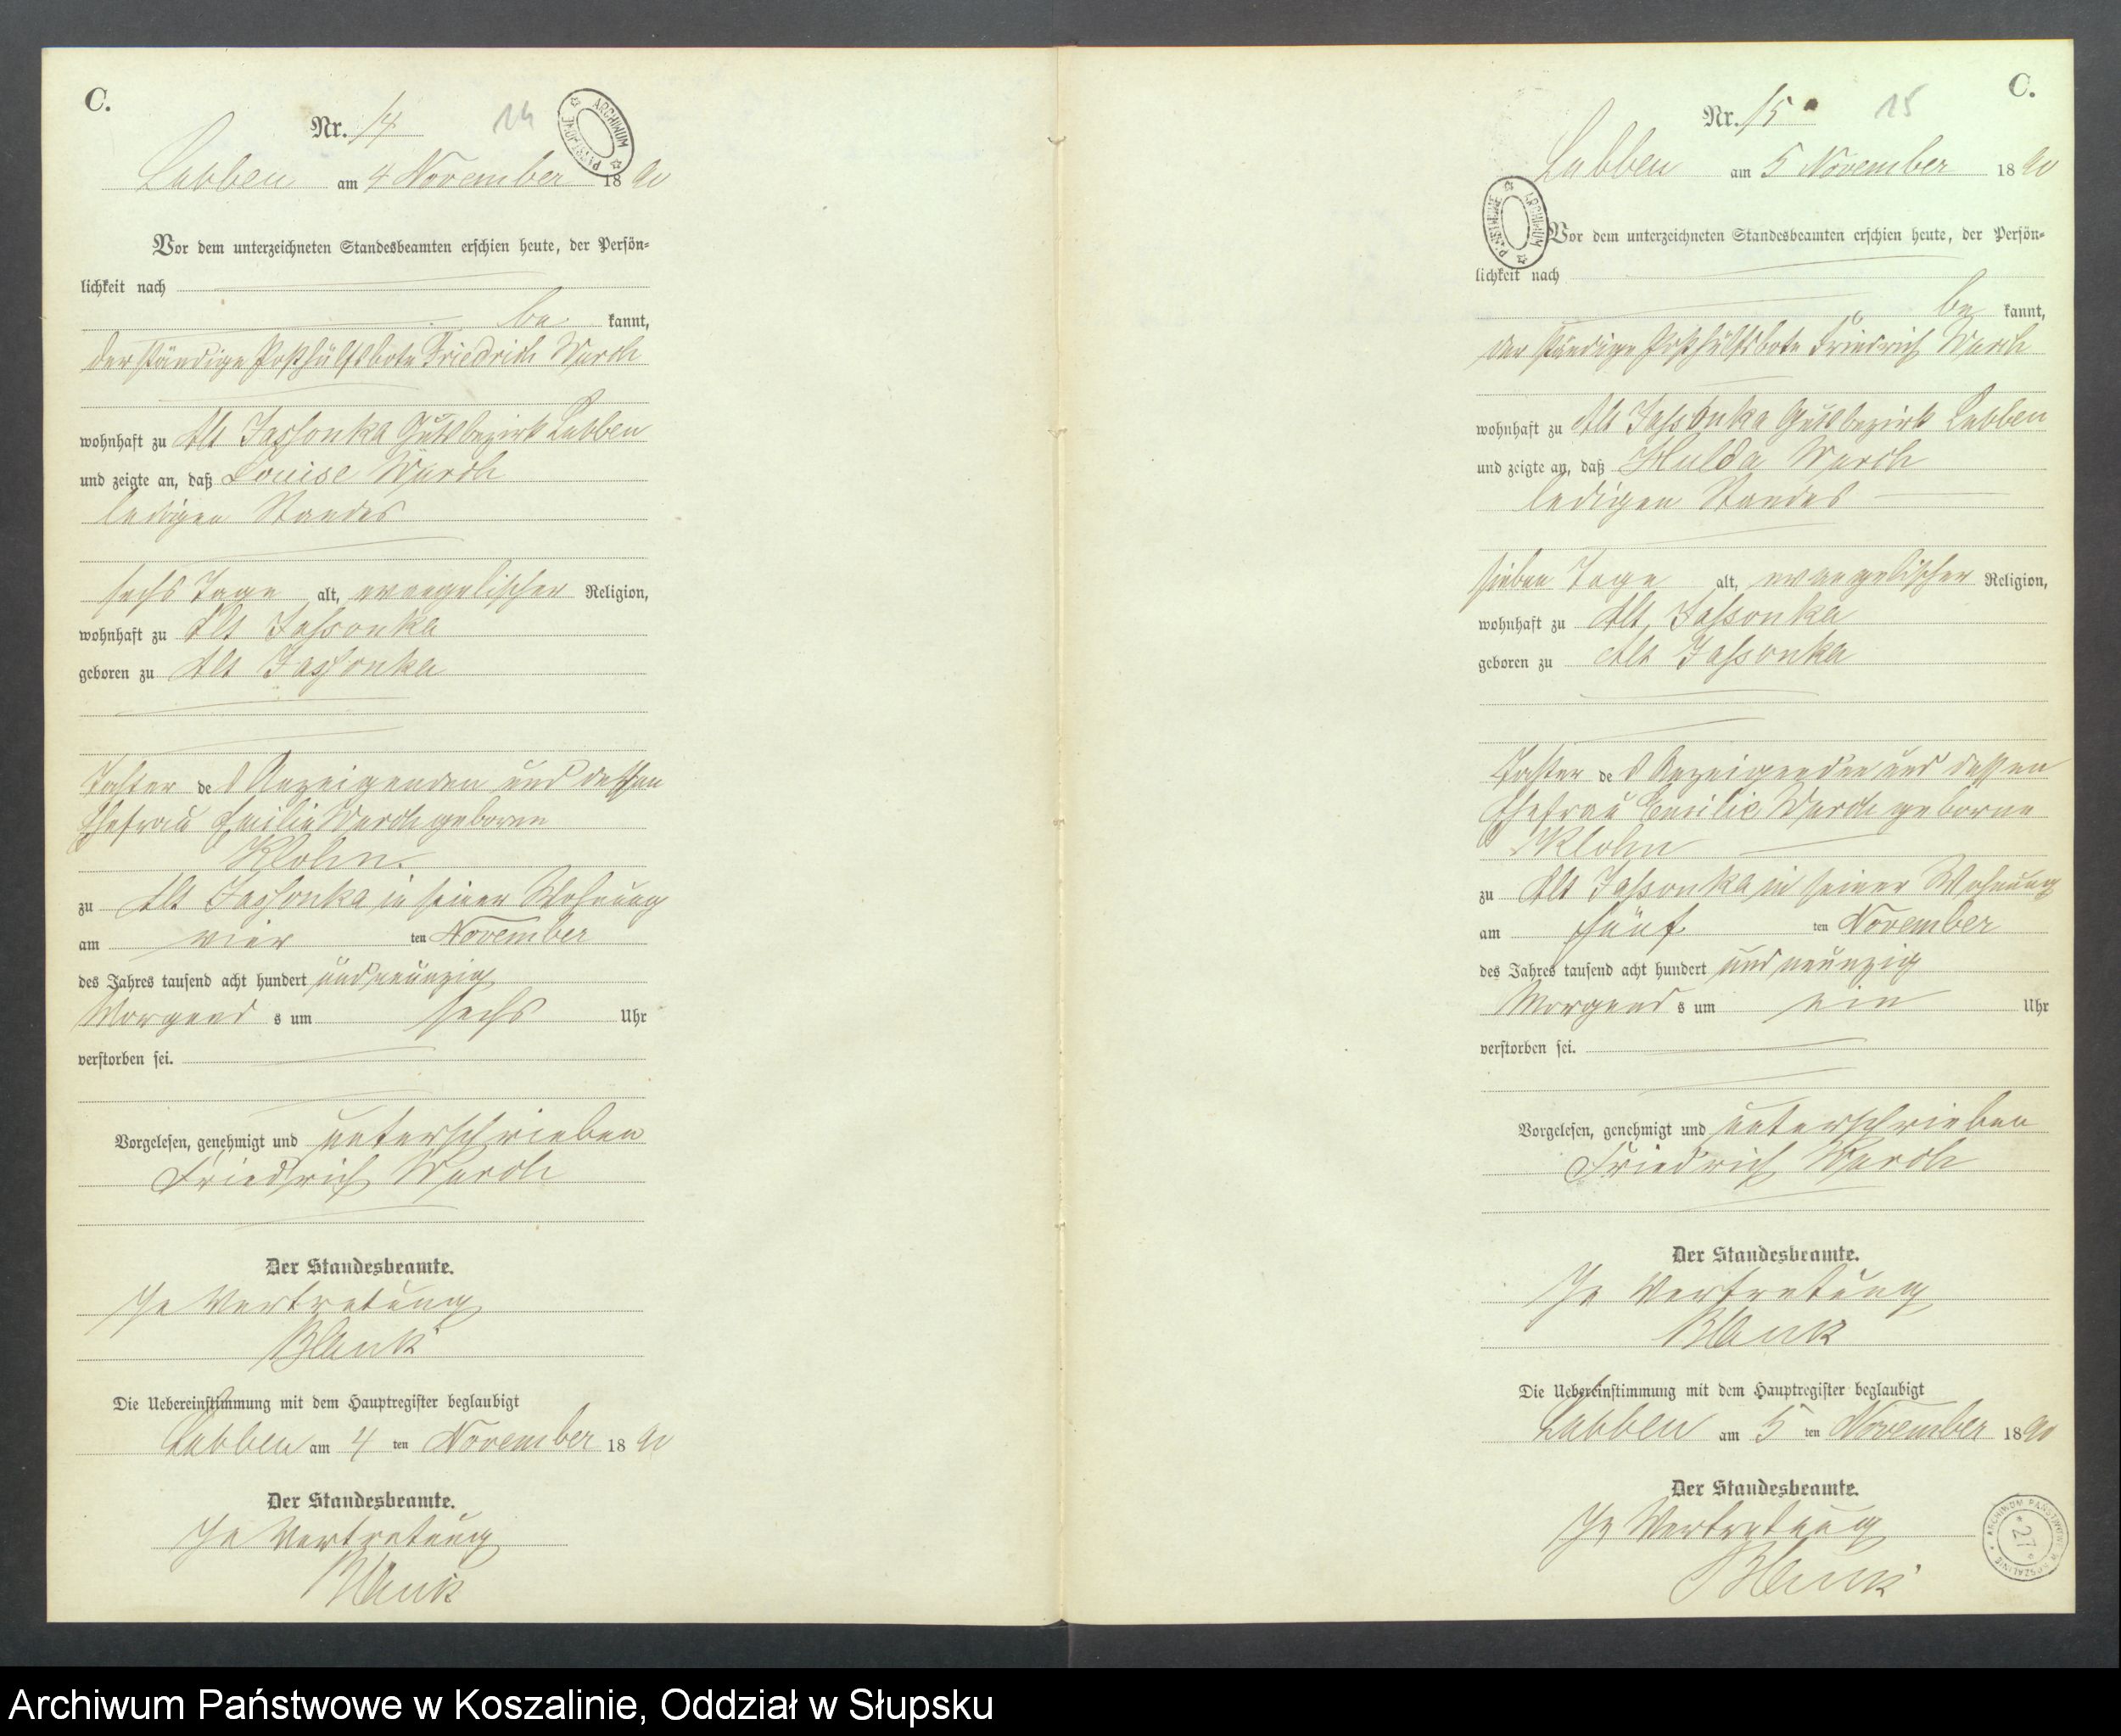 C.
Nr. 14
14
ARCHIWUM PAŃSTWOWE
Labben am 4 November 1890
Vor dem unterzeichneten Standesbeamten erschien heute, der Persön-
lichkeit nach
be kannt,
der ständige Posthülfsbote Friedrich Warch
wohnhaft zu Alt Jassonka Gutsbezirk Labben
und zeigte an, daß Louise Warch
ledigen Standes
sechs Tage alt, evangelischer Religion,
wohnhaft zu Alt Jassonka
geboren zu Alt Jassonka
Tochter des Anzeigenden und dessen
Ehefrau Emilie Warch geborne
Klohn
zu Alt Jassonka in seiner Wohnung
am vier ten November
des Jahres tausend acht hundert und neunzig
Morgens um sechs Uhr
verstorben sei.
Vorgelesen, genehmigt und unterschrieben
Friedrich Warch
Der Standesbeamte.
In Vertretung
Blank
Die Uebereinstimmung mit dem Hauptregister beglaubigt
Labben am 4 ten November 1890
Der Standesbeamte.
In Vertretung
Blank
C.
Nr. 15
15
ARCHIWUM PAŃSTWOWE
Labben am 5 November 1890
Vor dem unterzeichneten Standesbeamten erschien heute, der Persön-
lichkeit nach
be kannt,
der ständige Posthülfsbote Friedrich Warch
wohnhaft zu Alt Jassonka Gutsbezirk Labben
und zeigte an, daß Hulda Warch
ledigen Standes
sieben Tage alt, evangelischer Religion,
wohnhaft zu Alt Jassonka
geboren zu Alt Jassonka
Tochter des Anzeigenden und dessen
Ehefrau Emilie Warch geborne
Klohn
zu Alt Jassonka in seiner Wohnung
am fünf ten November
des Jahres tausend acht hundert und neunzig
Morgens um ein Uhr
verstorben sei.
Vorgelesen, genehmigt und unterschrieben
Friedrich Warch
Der Standesbeamte.
In Vertretung
Blank
Die Uebereinstimmung mit dem Hauptregister beglaubigt
Labben am 5 ten November 1890
Der Standesbeamte.
In Vertretung
Blank
ARCHIWUM PAŃSTWOWE W KOSZALINIE
27
Archiwum Państwowe w Koszalinie, Oddział w Słupsku